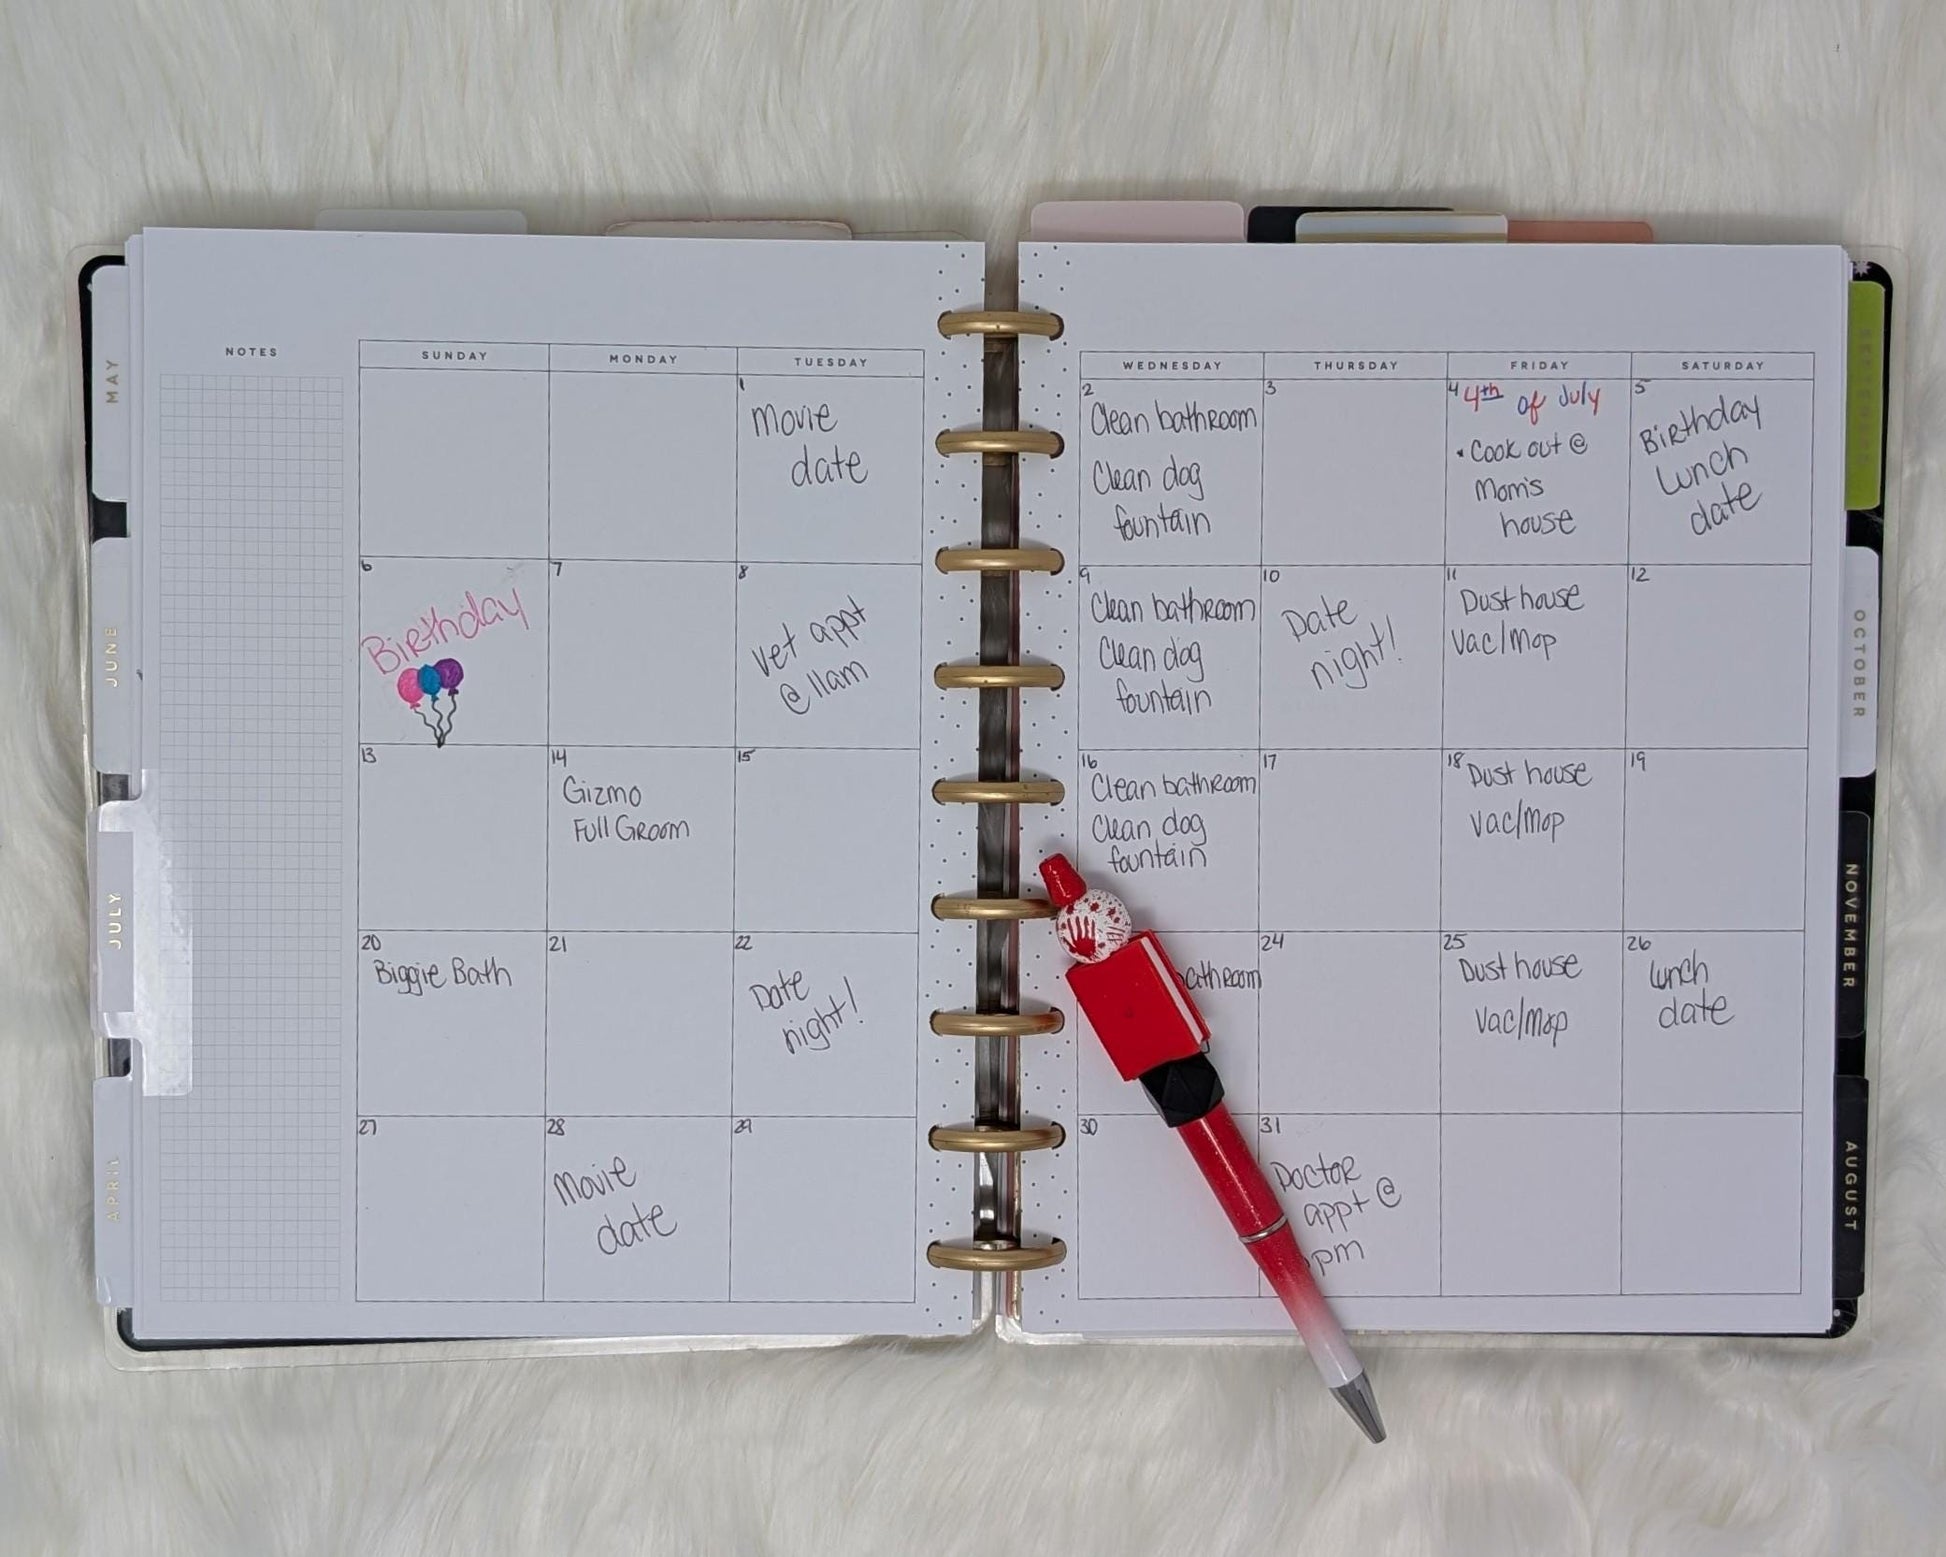 NOTES
SUNDAY
MONDAY
TUESDAY
WEDNESDAY
THURSDAY
FRIDAY
SATURDAY
1
Movie
date
2
Clean bathroom
Clean dog
fountain
3
4
4th of July
• Cook out @
Mom's
house
5
Birthday
Lunch
date
6
Birthday
7
8
Vet appt
@ 11am
9
Clean bathroom
Clean dog
fountain
10
Date
night!
11
Dust house
Vac/Mop
12
13
14
Gizmo
Full Groom
15
16
Clean bathroom
Clean dog
fountain
17
18
Dust house
Vac/Mop
19
20
Biggie Bath
21
22
Date
night!
bathroom
24
25
Dust house
Vac/Mop
26
Lunch
date
27
28
Movie
date
29
30
31
Doctor
appt @
pm
MAY
JUNE
JULY
APRIL
SEPTEMBER
OCTOBER
NOVEMBER
AUGUST